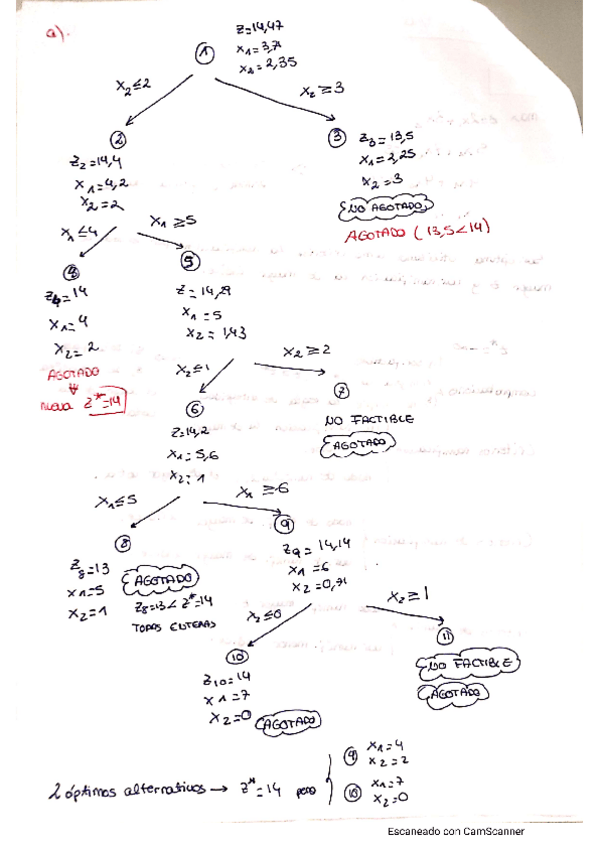 a).
1
Z=14,47
x1=3,71
x2=2,35
x2≤2
x2≥3
2
Z2=14,4
x1=4,2
x2=2
3
Z3=13,5
x1=2,25
x2=3
NO AGOTADO
AGOTADO (13,5<14)
x1≤4
x1≥5
4
Z4=14
x1=4
x2=2
AGOTADO
nueva Z*=14
5
Z=14,29
x1=5
x2=1,43
x2≤1
x2≥2
6
Z=14,2
x1=5,6
x2=1
7
NO FACTIBLE
AGOTADO
x1≤5
x1≥6
8
Z8=13
x1=5
x2=1
AGOTADO
Z8=13<Z*=14
TODAS ENTERAS
9
Z9=14,14
x1=6
x2=0,71
x2≤0
x2≥1
10
Z10=14
x1=7
x2=0
AGOTADO
11
NO FACTIBLE
AGOTADO
2 óptimos alternativos → Z*=14 para
4 x1=4
x2=2
10 x1=7
x2=0
Escaneado con CamScanner